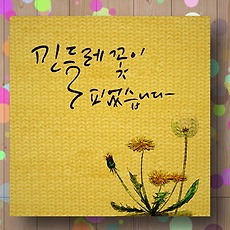 민들레 꽃이
피었습니다